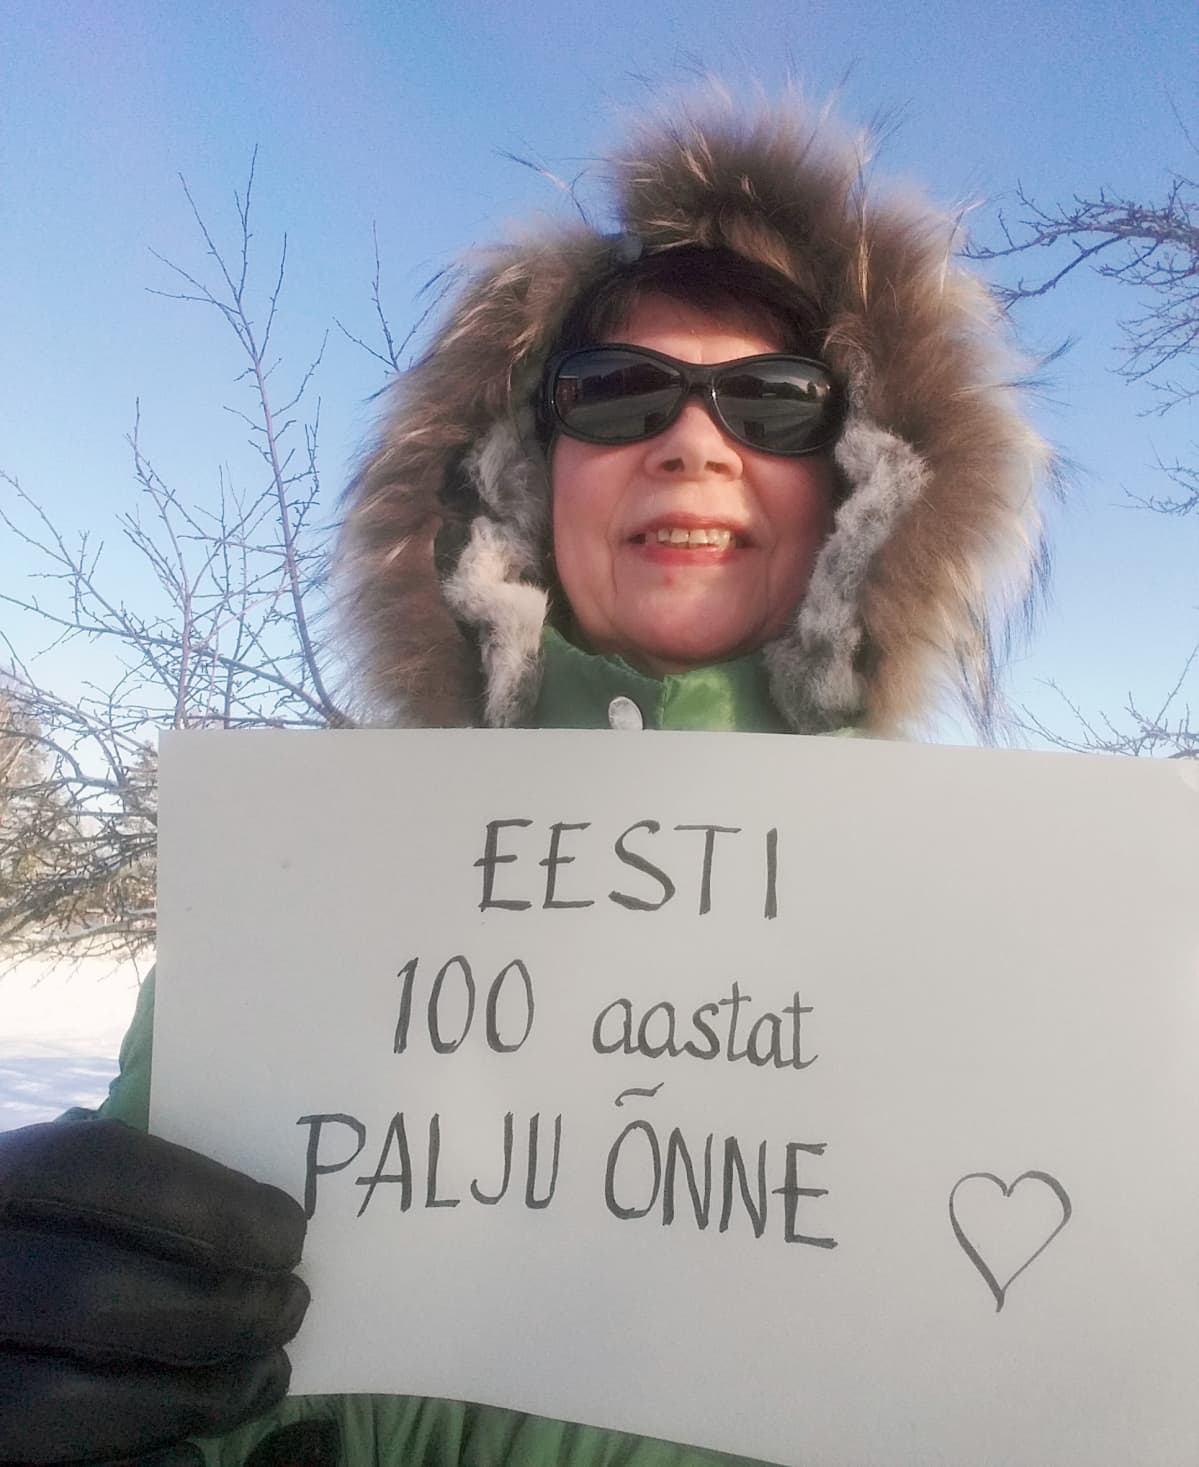 EESTI
100 aastat
PALJU ÕNNE